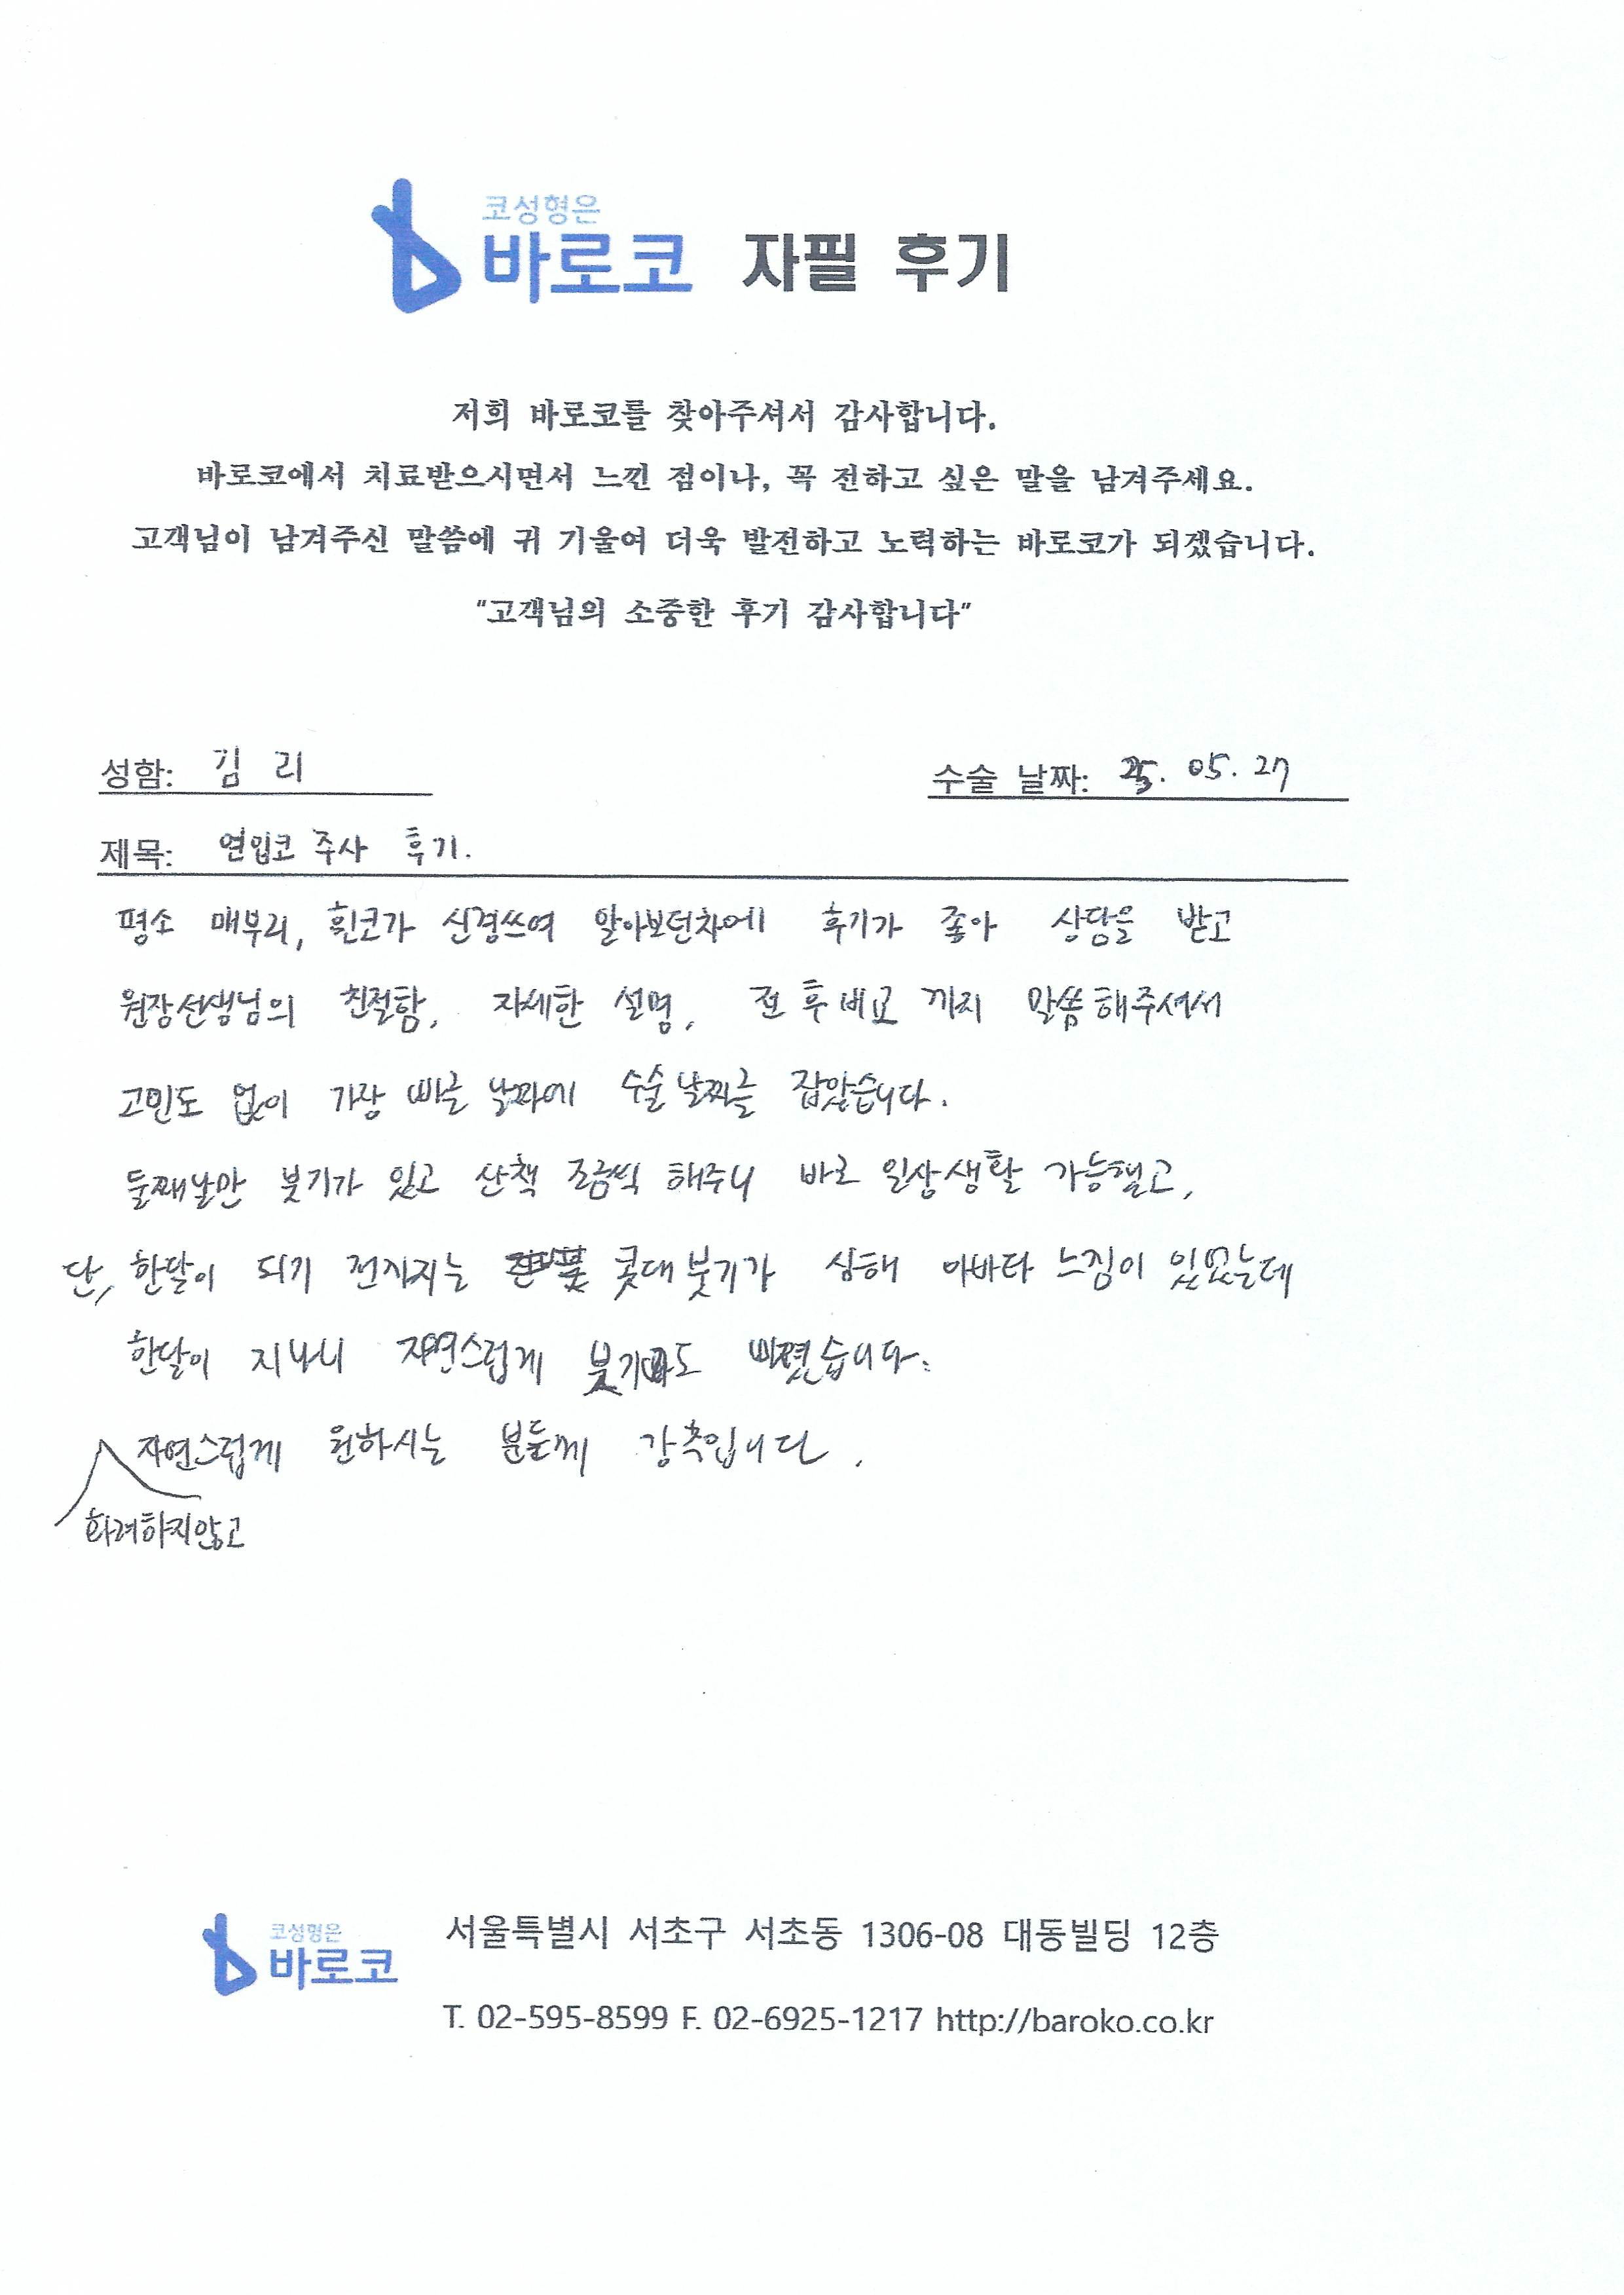 코성형은
바로코 자필 후기
저희 바로코를 찾아주셔서 감사합니다.
바로코에서 치료받으시면서 느낀 점이나, 꼭 전하고 싶은 말을 남겨주세요.
고객님이 남겨주신 말씀에 귀 기울여 더욱 발전하고 노력하는 바로코가 되겠습니다.
"고객님의 소중한 후기 감사합니다"
성함: 김 리 수술 날짜: 25. 05. 27
제목: 주사 후기.
평소 매부리, 휜코가 신경쓰여 알아보던차에 후기가 좋아 상담을 받고
원장선생님의 친절함, 자세한 설명, 전후비교 까지 말씀해주셔서
고민도 없이 가장 빠른 날짜에 수술날짜를 잡았습니다.
둘째날만 붓기가 있고 산책 조금씩 해주니 바로 일상생활 가능했고,
단, 한달이 되기 전까지는 콧대붓기가 심해 아바타 느낌이 있었는데
한달이 지나니 자연스럽게 붓기도 빠졌습니다.
자연스럽게 원하시는 분들께 강추입니다.
화려하지않고
코성형은
바로코
서울특별시 서초구 서초동 1306-08 대동빌딩 12층
T. 02-595-8599 F. 02-6925-1217 http://baroko.co.kr